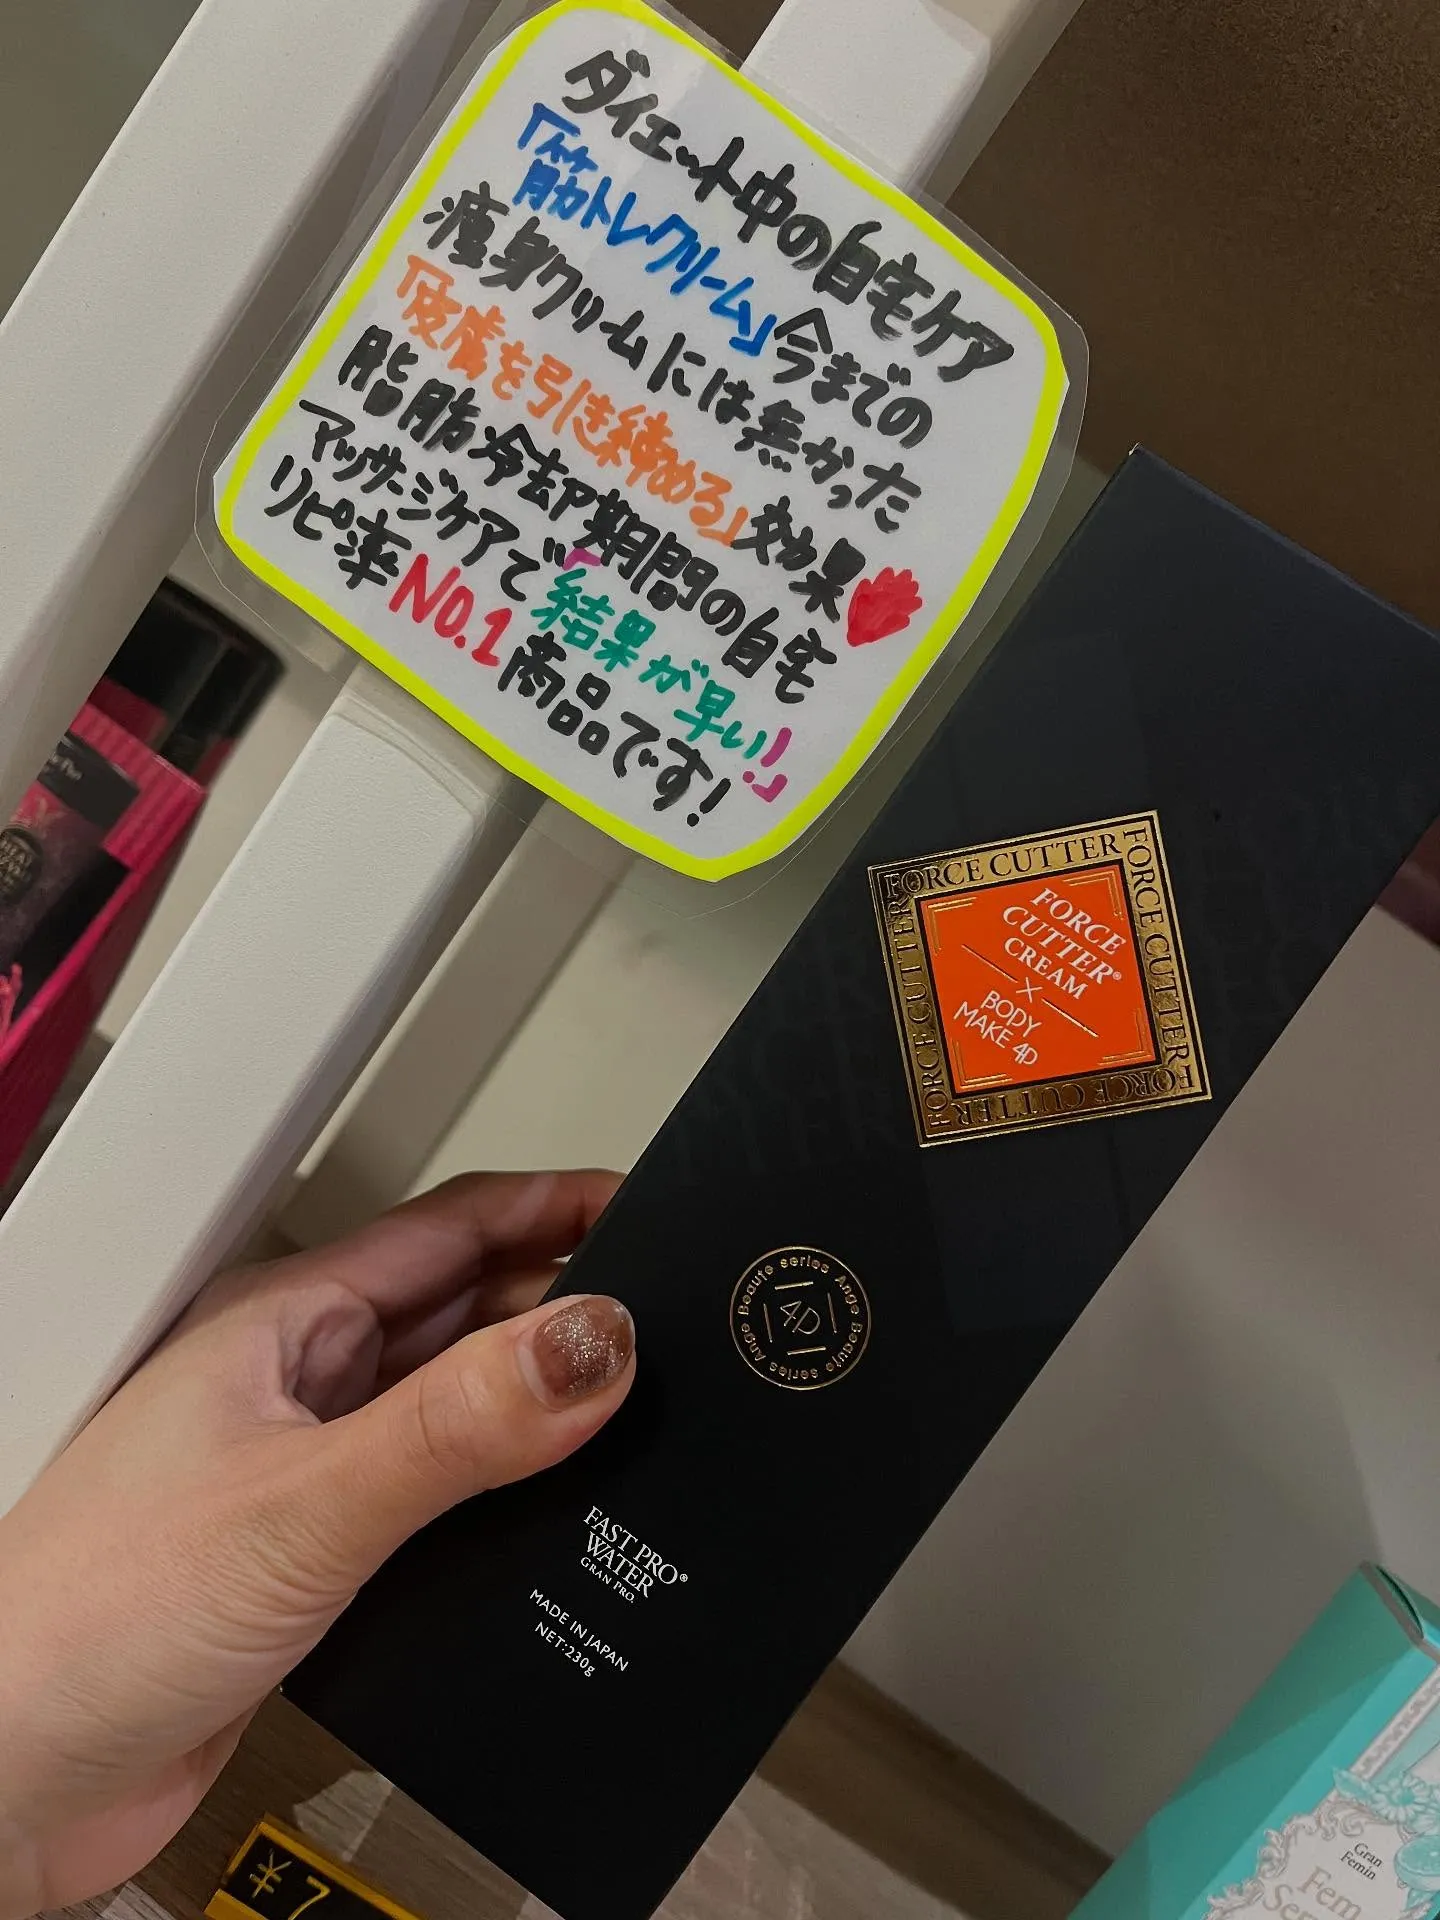 ダイエット中の自宅ケア
「筋トレクリーム」今までの
痩身クリームには無かった
「皮膚を引き締める」効果
脂肪冷却期間の自宅
マッサージケアで「結果が早い!」
リピ率No.1商品です!
FORCE CUTTER
FORCE CUTTER
FORCE CUTTER
FORCE CUTTER
FORCE
CUTTER®
CREAM
×
BODY
MAKE 4D
Ange Beaute series Ange Beaute series
4D
FAST PRO®
WATER
GRAN PRO.
MADE IN JAPAN
NET:230g
¥7
Gran
Femin
Fem